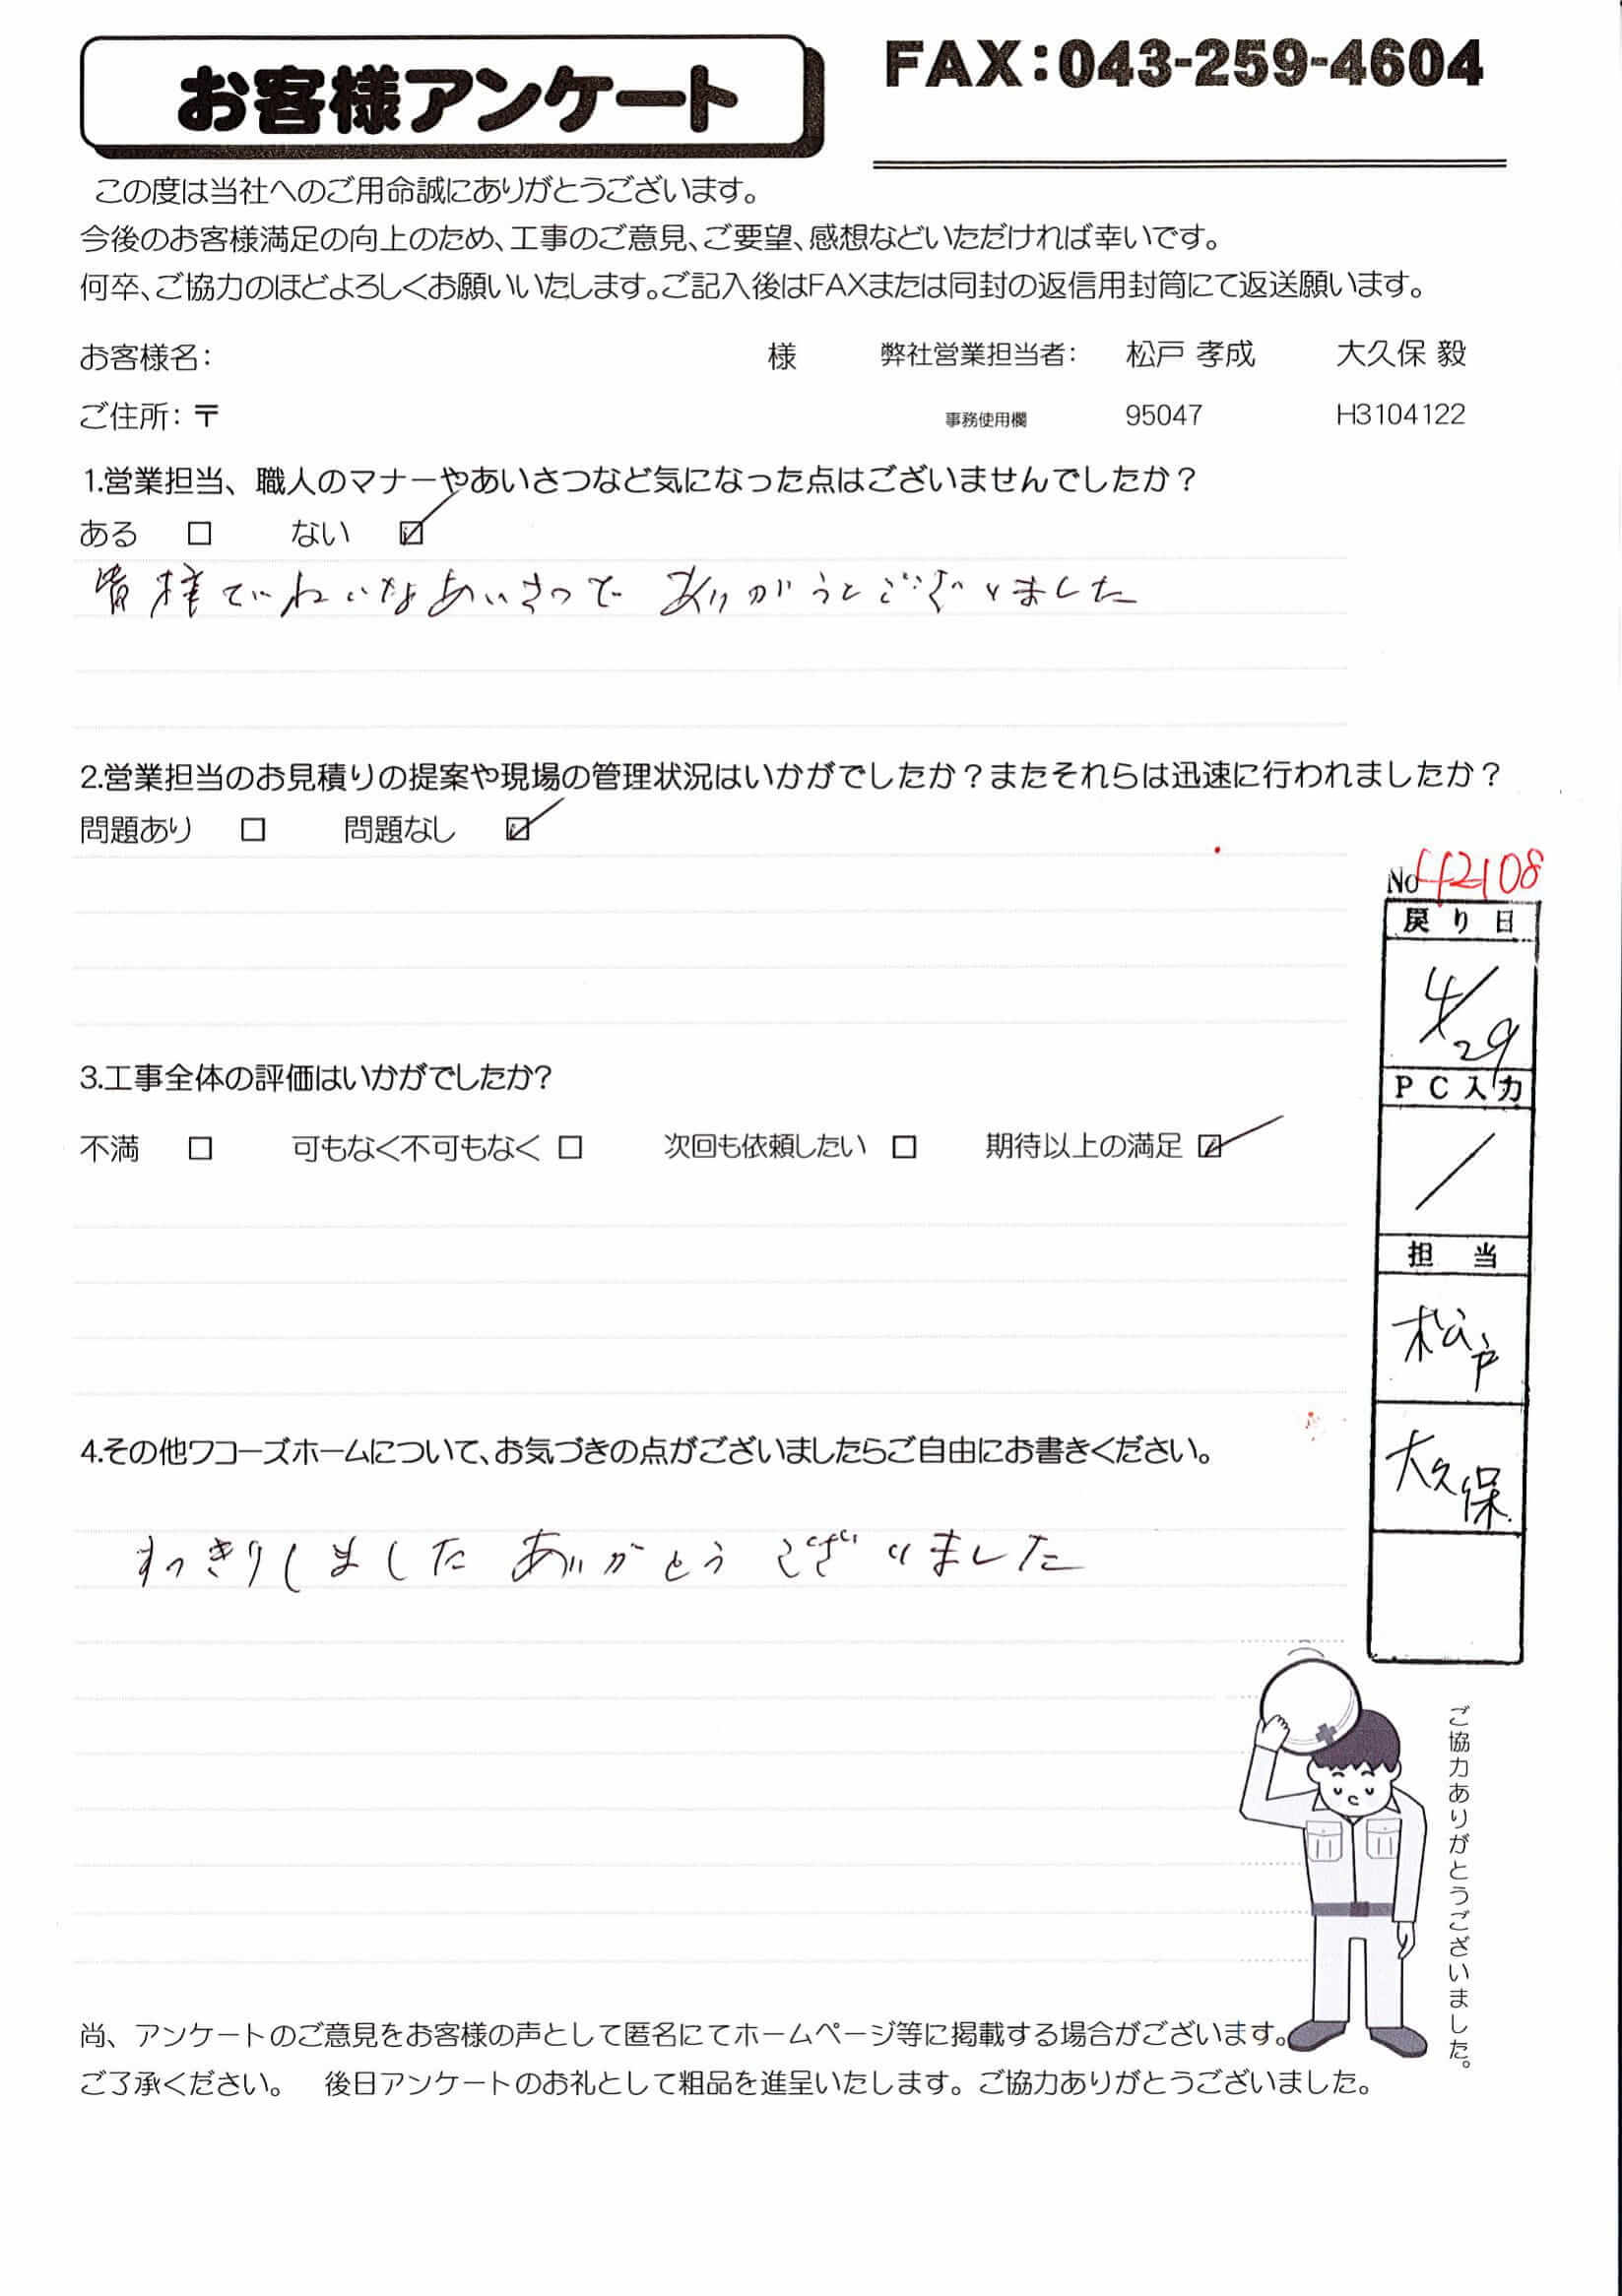 お客様アンケート
FAX：043-259-4604
この度は当社へのご用命誠にありがとうございます。
今後のお客様満足の向上のため、工事のご意見、ご要望、感想などいただければ幸いです。
何卒、ご協力のほどよろしくお願いいたします。ご記入後はFAXまたは同封の返信用封筒にて返送願います。
お客様名： 様 弊社営業担当者： 松戸 孝成 大久保 毅
ご住所：〒 事務使用欄 95047 H3104122
1.営業担当、職人のマナーやあいさつなど気になった点はございませんでしたか？
ある □ ない ☑
皆様ていねいなあいさつで ありがとうございました
2.営業担当のお見積りの提案や現場の管理状況はいかがでしたか？またそれらは迅速に行われましたか？
問題あり □ 問題なし ☑
No 42108
戻り日
4/29
PC入力
/
担当
松戸
大久保
3.工事全体の評価はいかがでしたか?
不満 □ 可もなく不可もなく □ 次回も依頼したい □ 期待以上の満足 ☑
4.その他ワコーズホームについて、お気づきの点がございましたらご自由にお書きください。
すっきりしました ありがとう ございました
ご協力ありがとうございました。
尚、アンケートのご意見をお客様の声として匿名にてホームページ等に掲載する場合がございます。
ご了承ください。 後日アンケートのお礼として粗品を進呈いたします。ご協力ありがとうございました。